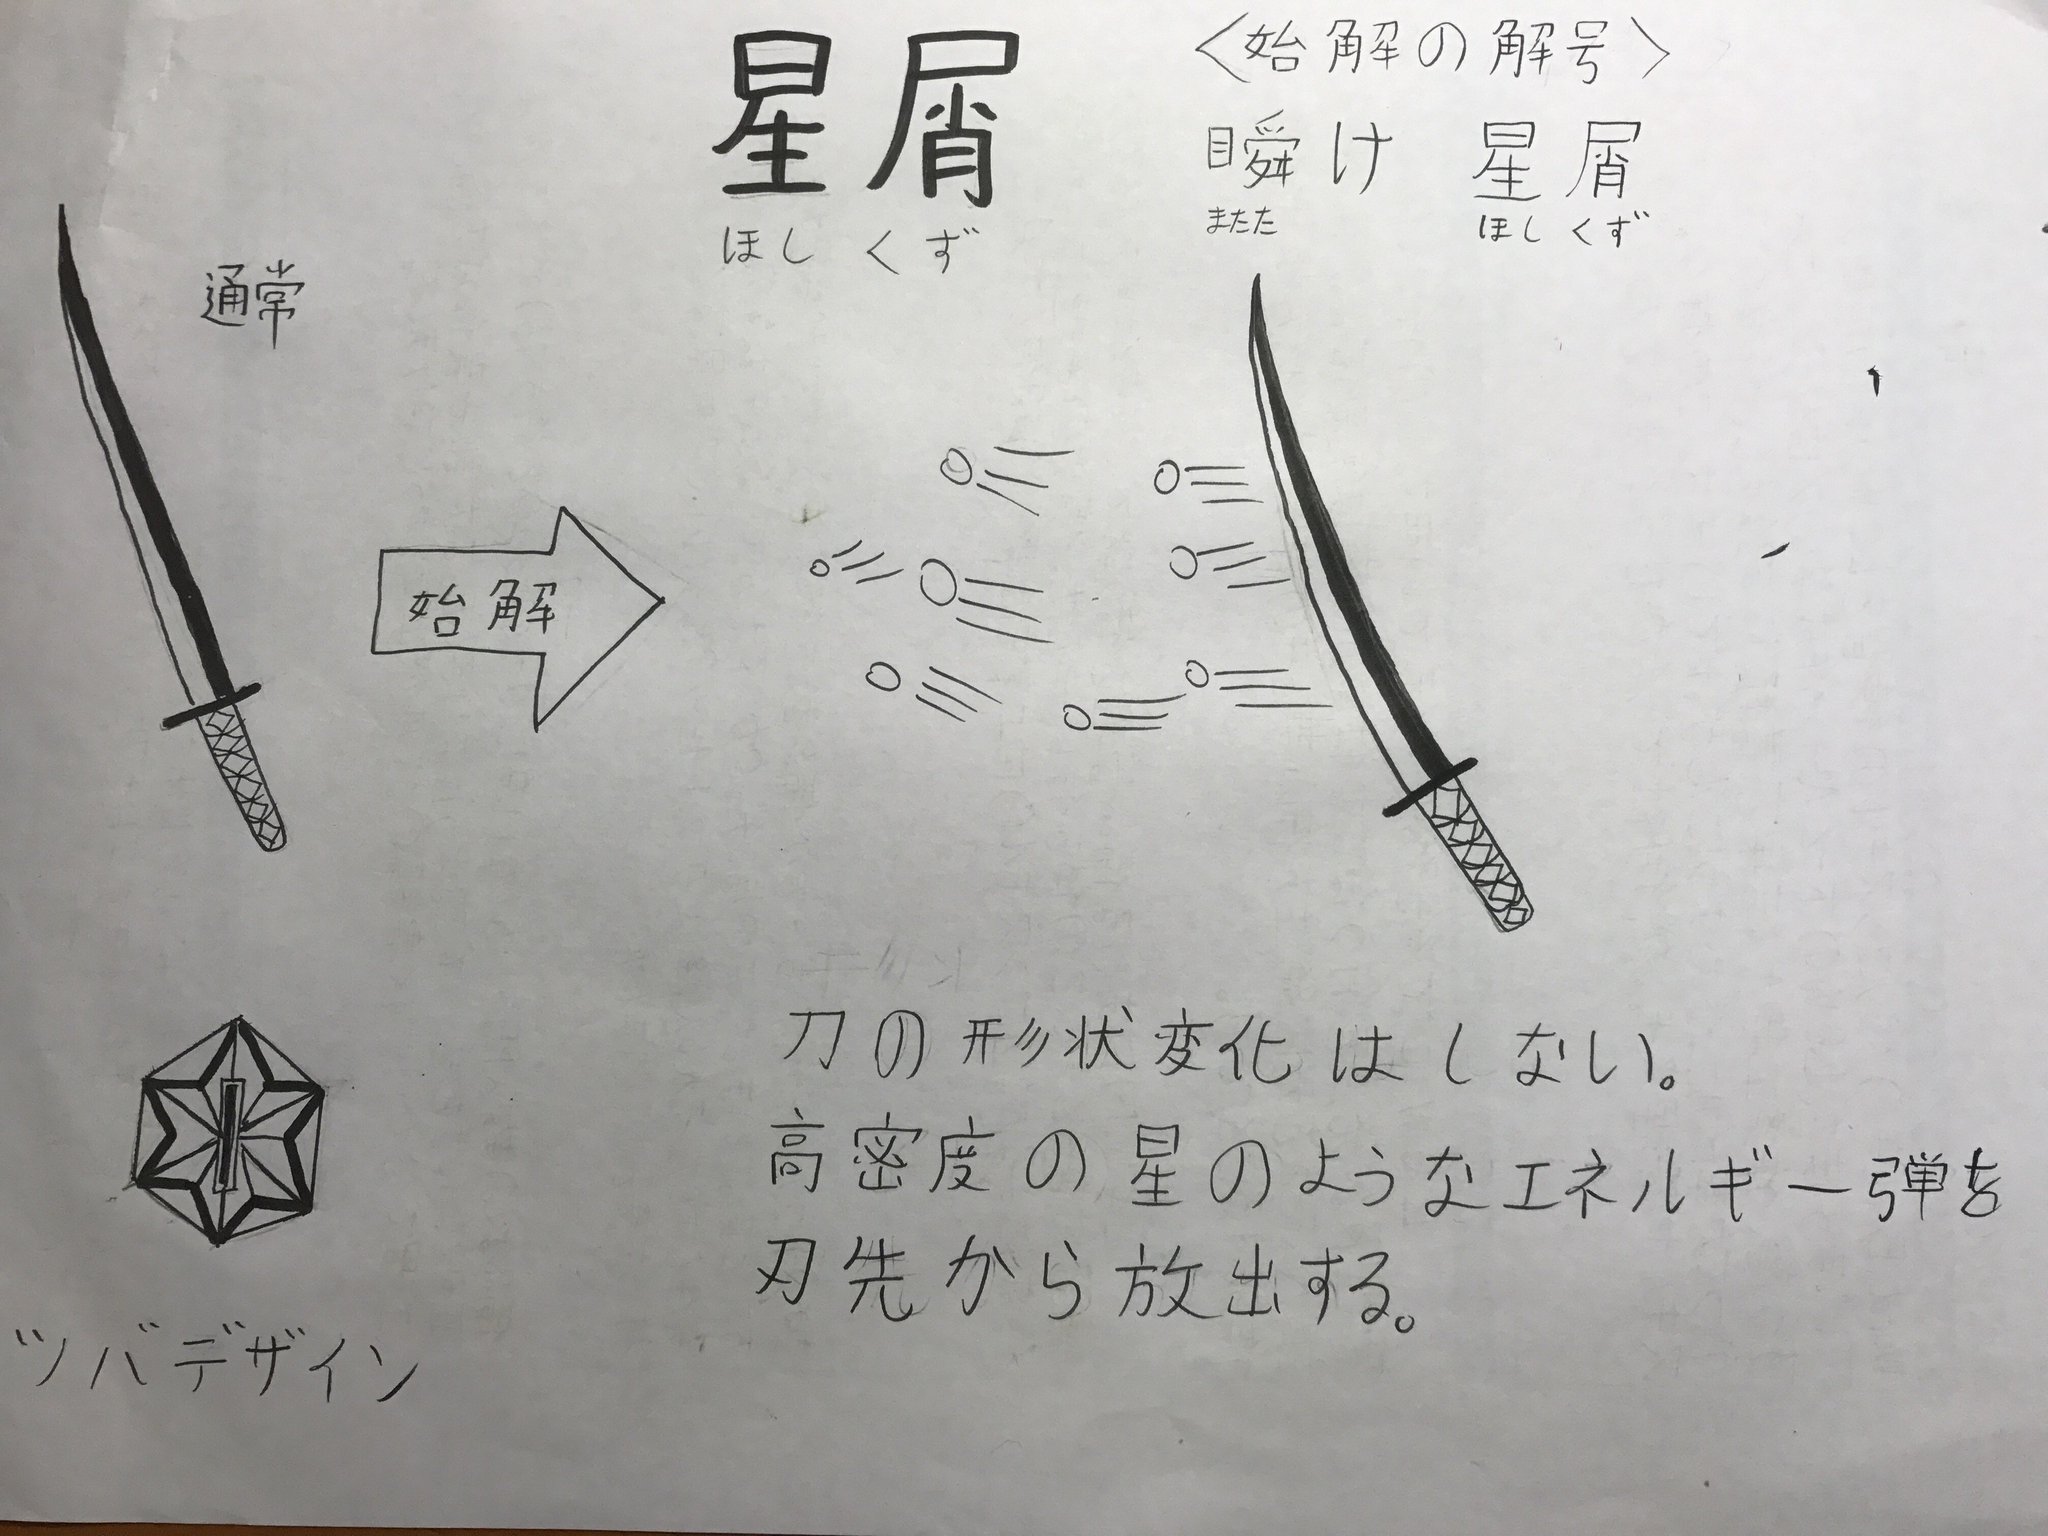 星屑
ほしくず
<始解の解号>
瞬け 星屑
またた ほしくず
通常
始解
刀の形状変化はしない。
高密度の星のようなエネルギー弾を
刃先から放出する。
ツバデザイン